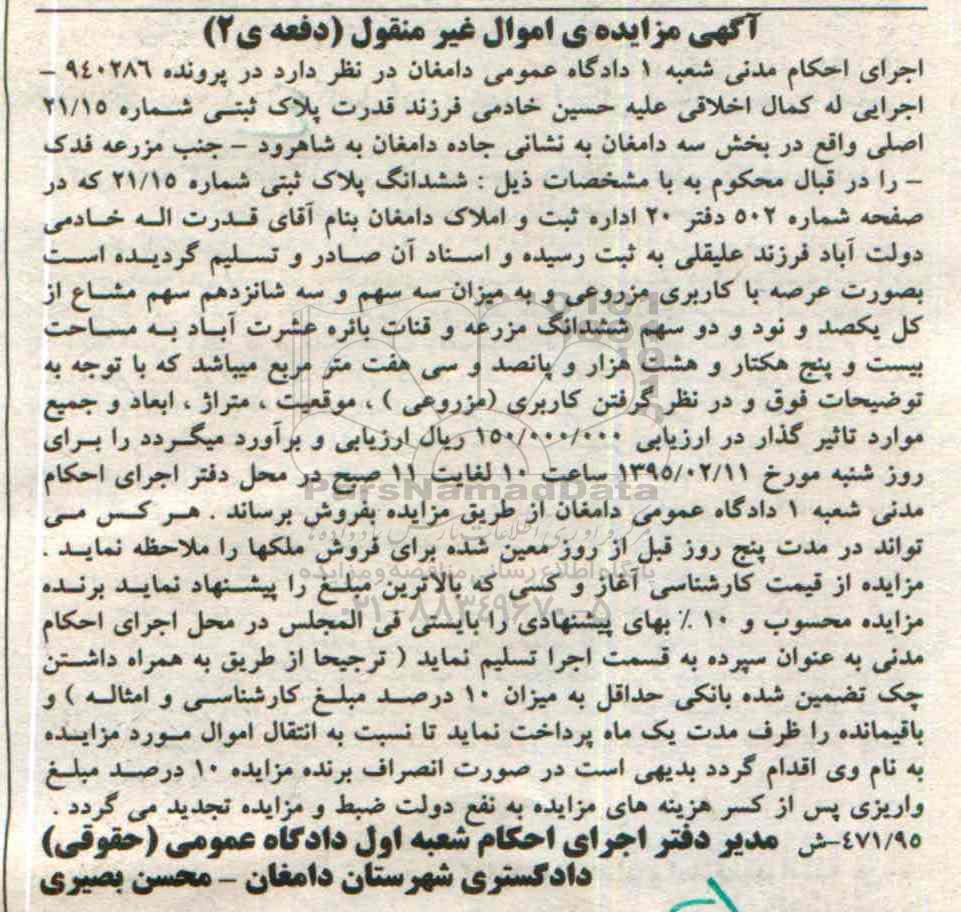 آگهی مزایده ی اموال غیر منقول (دفعه ی۲)
اجرای احکام مدنی شعبه ۱ دادگاه عمومی دامغان در نظر دارد در پرونده ۹٤۰۲۸٦ –
اجرایی له کمال اخلاقی علیه حسین خادمی فرزند قدرت پلاک ثبتی شماره ۲۱/۱۵
اصلی واقع در بخش سه دامغان به نشانی جاده دامغان به شاهرود – جنب مزرعه فدک
– را در قبال محکوم به با مشخصات ذیل : ششدانگ پلاک ثبتی شماره ۲۱/۱۵ که در
صفحه شماره ۵۰۲ دفتر ۲۰ اداره ثبت و املاک دامغان بنام آقای قدرت اله خادمی
دولت آباد فرزند علیقلی به ثبت رسیده و اسناد آن صادر و تسلیم گردیده است
بصورت عرصه با کاربری مزروعی و به میزان سه سهم و سه شانزدهم سهم مشاع از
کل یکصد و نود و دو سهم ششدانگ مزرعه و قنات بائره عشرت آباد به مساحت
بیست و پنج هکتار و هشت هزار و پانصد و سی هفت متر مربع میباشد که با توجه به
توضیحات فوق و در نظر گرفتن کاربری (مزروعی ) ، موقعیت ، متراژ ، ابعاد و جمیع
موارد تاثیر گذار در ارزیابی ۱۵۰/۰۰۰/۰۰۰ ریال ارزیابی و برآورد میگردد را برای
روز شنبه مورخ ۱۳۹۵/۰۲/۱۱ ساعت ۱۰ لغایت ۱۱ صبح در محل دفتر اجرای احکام
ParsNamadData
مدنی شعبه ۱ دادگاه عمومی دامغان از طریق مزایده بفروش برساند . هر کس می
تواند در مدت پنج روز قبل از روز معین شده برای فروش ملکها را ملاحظه نماید .
پایگاه اطلاع رسانی مناقصه و مزایده
مزایده از قیمت کارشناسی آغاز و کسی که بالاترین مبلغ را پیشنهاد نماید برنده
۰۲۱-۸۸۳٤۹٦۷۰-۵
مزایده محسوب و ۱۰ ٪ بهای پیشنهادی را بایستی فی المجلس در محل اجرای احکام
مدنی به عنوان سپرده به قسمت اجرا تسلیم نماید ( ترجیحا از طریق به همراه داشتن
چک تضمین شده بانکی حداقل به میزان ۱۰ درصد مبلغ کارشناسی و امثاله ) و
باقیمانده را ظرف مدت یک ماه پرداخت نماید تا نسبت به انتقال اموال مورد مزایده
به نام وی اقدام گردد بدیهی است در صورت انصراف برنده مزایده ۱۰ درصد مبلغ
واریزی پس از کسر هزینه های مزایده به نفع دولت ضبط و مزایده تجدید می گردد .
٤۷۱/۹۵-ش مدیر دفتر اجرای احکام شعبه اول دادگاه عمومی (حقوقی)
دادگستری شهرستان دامغان – محسن بصیری